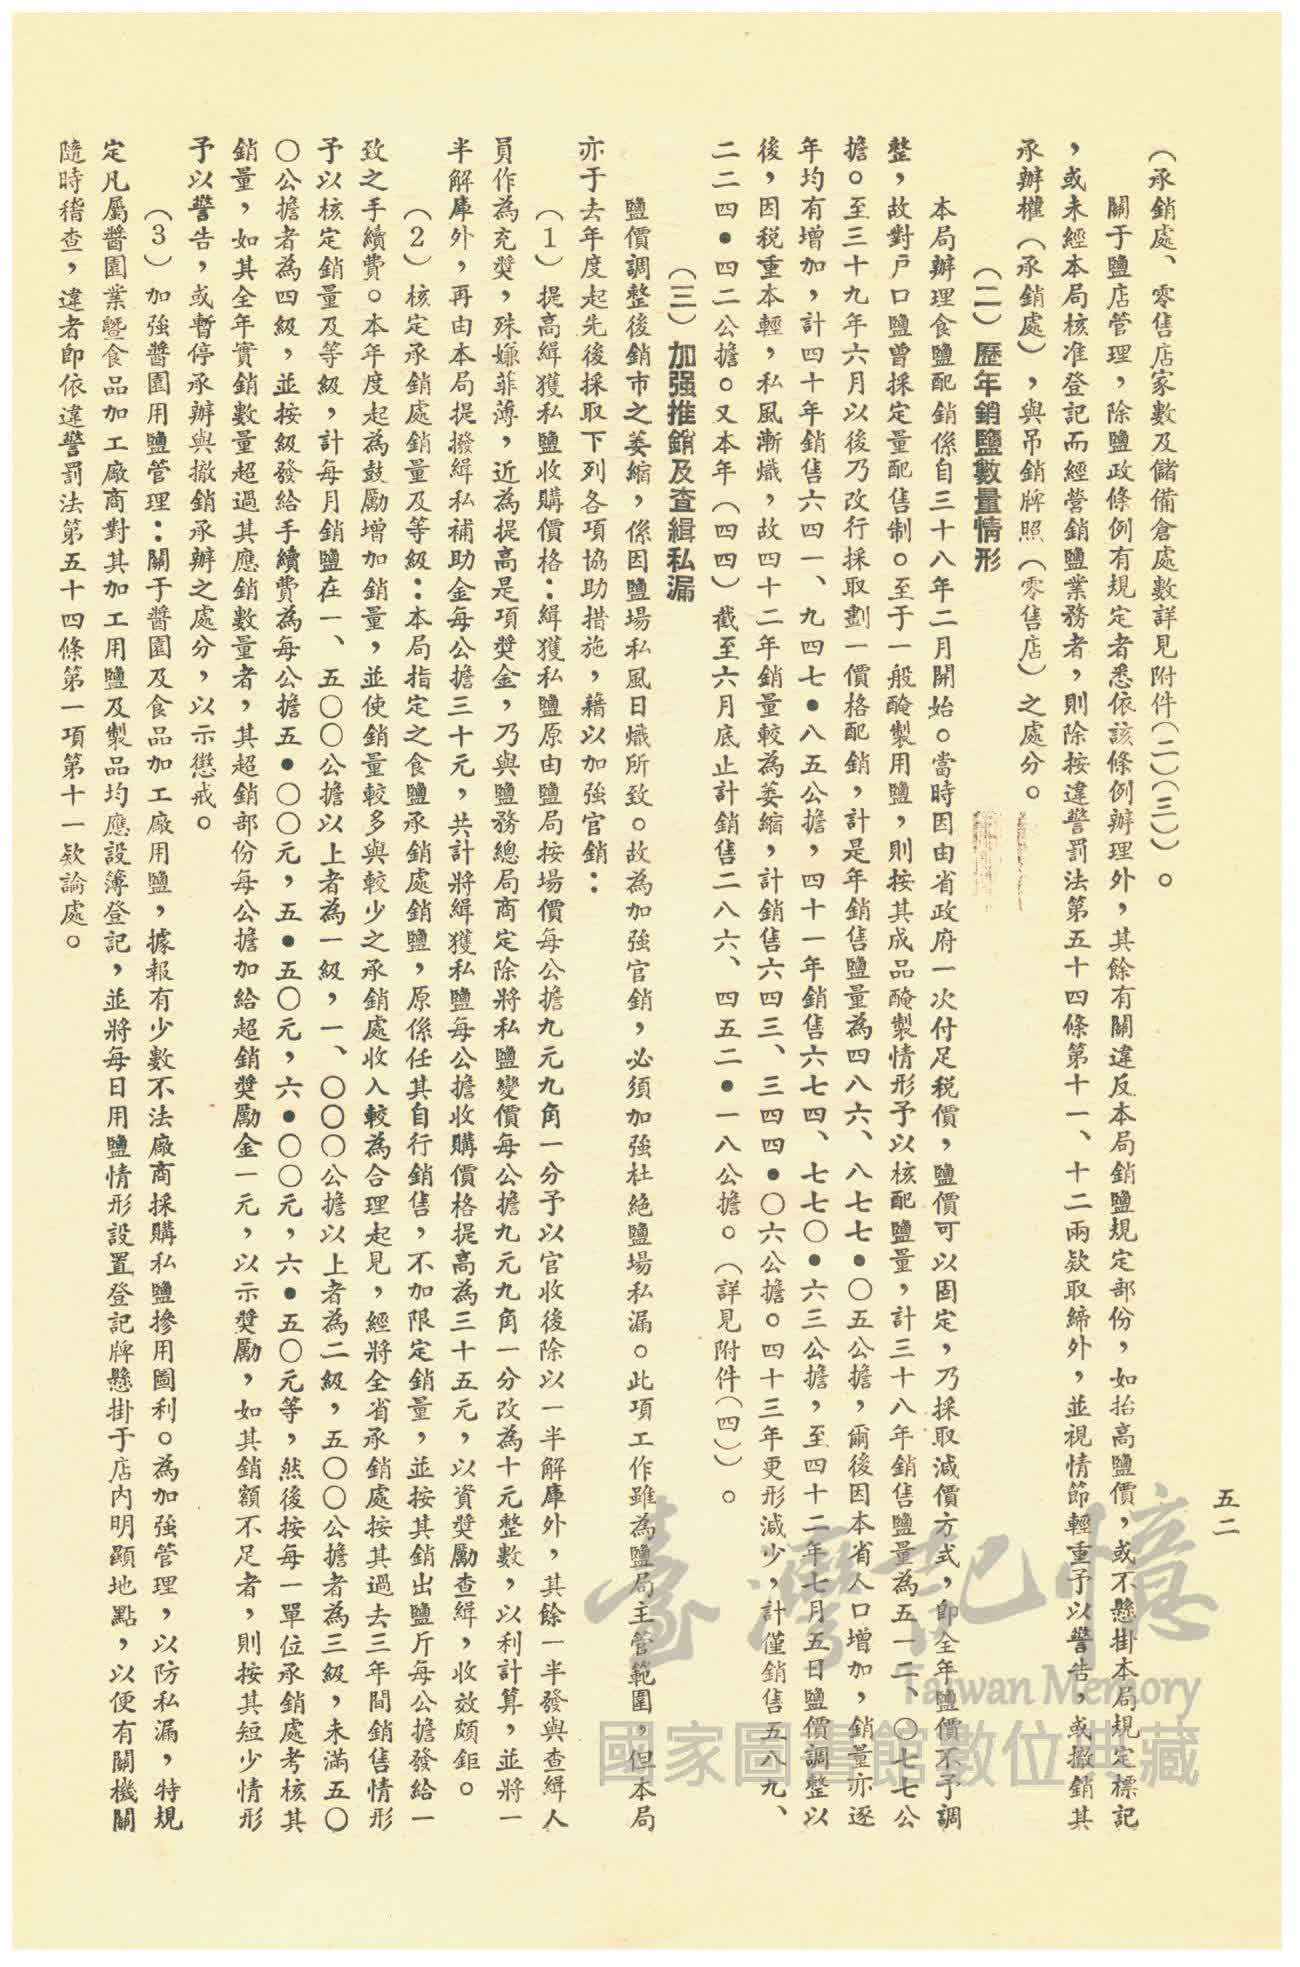 五二
（承銷處、零售店家數及儲備倉處數詳見附件（二）（三））。
關于鹽店管理，除鹽政條例有規定者悉依該條例辦理外，其餘有關違反本局銷鹽規定部份，如抬高鹽價，或不懸掛本局規定標記
，或未經本局核准登記而經營銷鹽業務者，則除按違警罰法第五十四條第十一、十二兩欵取締外，並視情節輕重予以警告，或撤銷其
承辦權（承銷處），與吊銷牌照（零售店）之處分。
（二）歷年銷鹽數量情形
本局辦理食鹽配銷係自三十八年二月開始。當時因由省政府一次付足稅價，鹽價可以固定，乃採取減價方式，卽全年鹽價不予調
整，故對戶口鹽曾採定量配售制。至于一般醃製用鹽，則按其成品醃製情形予以核配鹽量，計三十八年銷售鹽量為五一二、〇七七公
擔。至三十九年六月以後乃改行採取劃一價格配銷，計是年銷售鹽量為四八六、八七七•〇五公擔，爾後因本省人口增加，銷量亦逐
年均有增加，計四十年銷售六四一、九四七•八五公擔，四十一年銷售六七四、七七〇•六三公擔，至四十二年七月五日鹽價調整以
後，因稅重本輕，私風漸熾，故四十二年銷量較為萎縮，計銷售六四三、三四四•〇六公擔。四十三年更形減少，計僅銷售五八九、
二二四•四二公擔。又本年（四四）截至六月底止計銷售二八六、四五二•一八公擔。（詳見附件（四））。
（三）加强推銷及查緝私漏
鹽價調整後銷市之萎縮，係因鹽場私風日熾所致。故為加強官銷，必須加強杜絕鹽場私漏。此項工作雖為鹽局主管範圍，但本局
亦于去年度起先後採取下列各項協助措施，藉以加強官銷：
（1）提高緝獲私鹽收購價格：緝獲私鹽原由鹽局按場價每公擔九元九角一分予以官收後除以一半解庫外，其餘一半發與查緝人
員作為充奬，殊嫌菲薄，近為提高是項奬金，乃與鹽務總局商定除將私鹽變價每公擔九元九角一分改為十元整數，以利計算，並將一
半解庫外，再由本局提撥緝私補助金每公擔三十元，共計將緝獲私鹽每公擔收購價格提高為三十五元，以資奬勵查緝，收效頗鉅。
（2）核定承銷處銷量及等級：本局指定之食鹽承銷處銷鹽，原係任其自行銷售，不加限定銷量，並按其銷出鹽斤每公擔發給一
致之手續費。本年度起為鼓勵增加銷量，並使銷量較多與較少之承銷處收入較為合理起見，經將全省承銷處按其過去三年間銷售情形
予以核定銷量及等級，計每月銷鹽在一、五〇〇公擔以上者為一級，一、〇〇〇公擔以上者為二級，五〇〇公擔者為三級，未滿五〇
〇公擔者為四級，並按級發給手續費為每公擔五•〇〇元，五•五〇元，六•〇〇元，六•五〇元等，然後按每一單位承銷處考核其
銷量，如其全年實銷數量超過其應銷數量者，其超銷部份每公擔加給超銷奬勵金一元，以示奬勵，如其銷額不足者，則按其短少情形
予以警告，或暫停承辦與撤銷承辦之處分，以示懲戒。
（3）加強醬園用鹽管理：關于醬園及食品加工廠用鹽，據報有少數不法廠商採購私鹽摻用圖利。為加強管理，以防私漏，特規
定凡屬醬園業曁食品加工廠商對其加工用鹽及製品均應設簿登記，並將每日用鹽情形設置登記牌懸掛于店內明顯地點，以便有關機關
隨時稽查，違者卽依違警罰法第五十四條第一項第十一欵論處。
臺灣記憶
Taiwan Memory
國家圖書館數位典藏